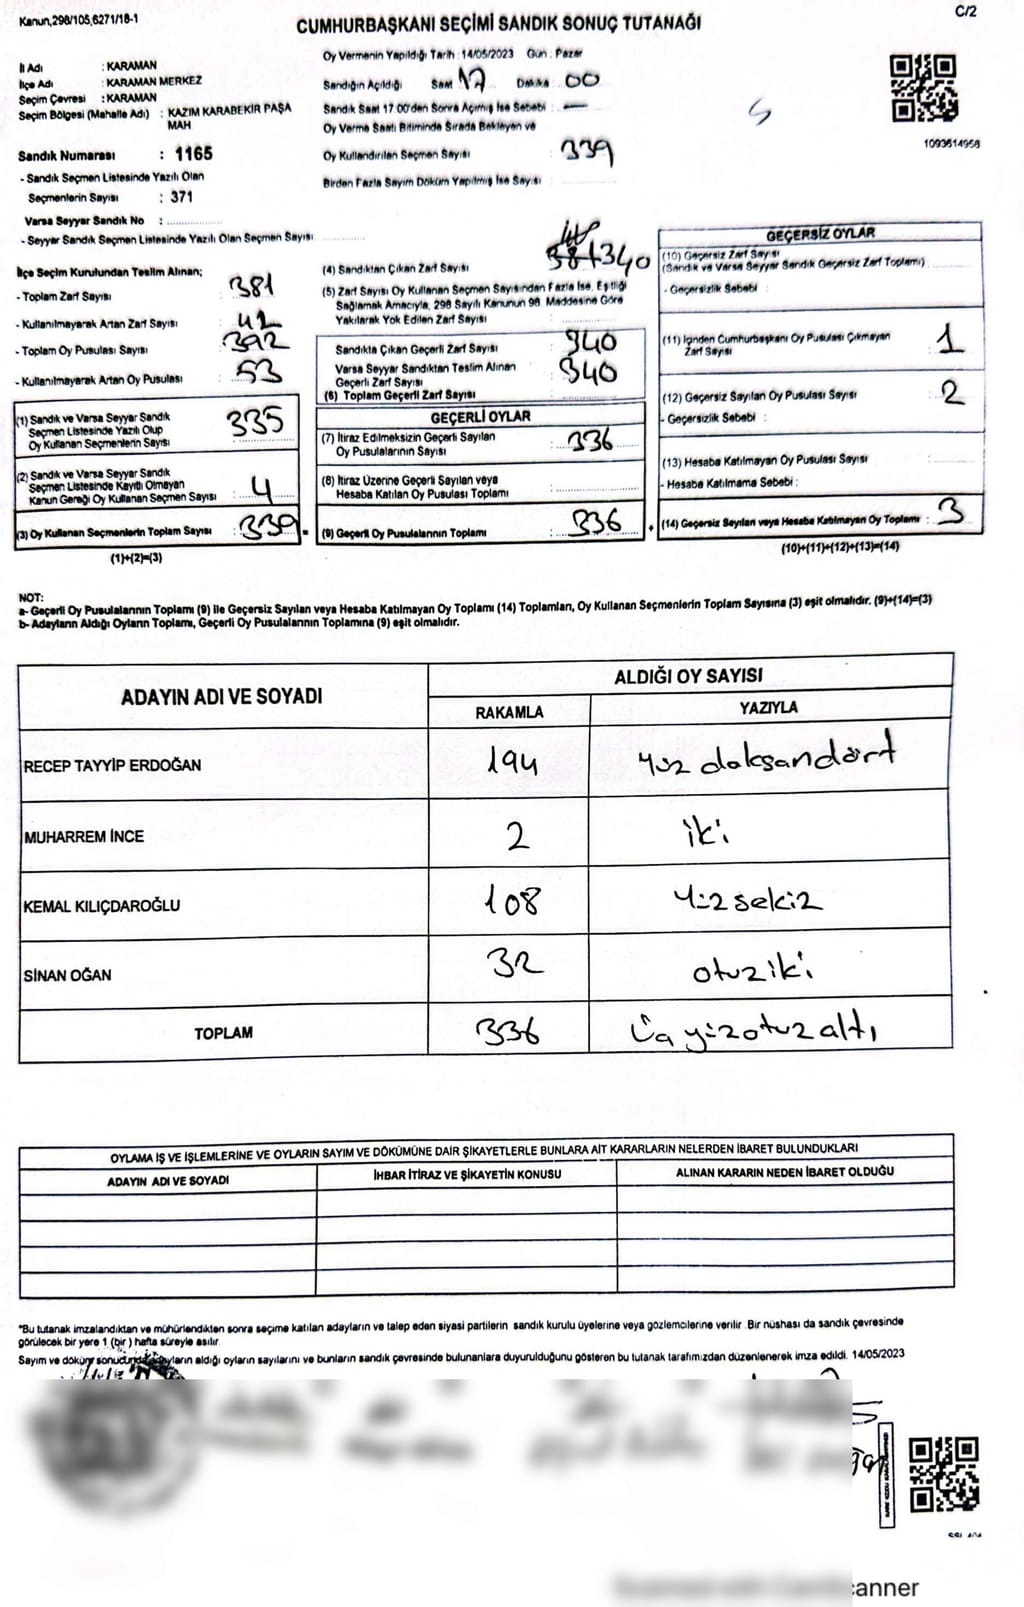 Kanun,298/105,6271/18-1
C/2
CUMHURBAŞKANI SEÇİMİ SANDIK SONUÇ TUTANAĞI
Oy Vermenin Yapıldığı Tarih : 14/05/2023 Gün : Pazar
İl Adı : KARAMAN
İlçe Adı : KARAMAN MERKEZ
Seçim Çevresi : KARAMAN
Seçim Bölgesi (Mahalle Adı) : KAZIM KARABEKİR PAŞA MAH
Sandık Numarası : 1165
- Sandık Seçmen Listesinde Yazılı Olan
Seçmenlerin Sayısı : 371
Varsa Seyyar Sandık No :
- Seyyar Sandık Seçmen Listesinde Yazılı Olan Seçmen Sayısı
Sandığın Açıldığı Saat 17 Dakika 00
Sandık Saat 17.00'den Sonra Açılmış İse Sebebi : —
Oy Verme Saati Bitiminde Sırada Bekleyen ve
Oy Kullandırılan Seçmen Sayısı : 339
Birden Fazla Sayım Döküm Yapılmış İse Sayısı :
1093614958
İlçe Seçim Kurulundan Teslim Alınan;
- Toplam Zarf Sayısı : 381
- Kullanılmayarak Artan Zarf Sayısı : 42
- Toplam Oy Pusulası Sayısı : 392
- Kullanılmayarak Artan Oy Pusulası : 53
(1) Sandık ve Varsa Seyyar Sandık
Seçmen Listesinde Yazılı Olup
Oy Kullanan Seçmenlerin Sayısı : 335
(2) Sandık ve Varsa Seyyar Sandık
Seçmen Listesinde Kayıtlı Olmayan
Kanun Gereği Oy Kullanan Seçmen Sayısı : 4
(3) Oy Kullanan Seçmenlerin Toplam Sayısı : 339
(1)+(2)=(3)
(4) Sandıktan Çıkan Zarf Sayısı 340
(5) Zarf Sayısı Oy Kullanan Seçmen Sayısından Fazla İse, Eşitliği
Sağlamak Amacıyla, 298 Sayılı Kanunun 98. Maddesine Göre
Yakılarak Yok Edilen Zarf Sayısı
Sandıkta Çıkan Geçerli Zarf Sayısı 340
Varsa Seyyar Sandıktan Teslim Alınan
Geçerli Zarf Sayısı 340
(6) Toplam Geçerli Zarf Sayısı
GEÇERLİ OYLAR
(7) İtiraz Edilmeksizin Geçerli Sayılan
Oy Pusulalarının Sayısı : 336
(8) İtiraz Üzerine Geçerli Sayılan veya
Hesaba Katılan Oy Pusulası Toplamı
(9) Geçerli Oy Pusulalarının Toplamı : 336
GEÇERSİZ OYLAR
(10) Geçersiz Zarf Sayısı
(Sandık ve Varsa Seyyar Sandık Geçersiz Zarf Toplamı)
- Geçersizlik Sebebi :
(11) İçinden Cumhurbaşkanı Oy Pusulası Çıkmayan
Zarf Sayısı 1
(12) Geçersiz Sayılan Oy Pusulası Sayısı : 2
- Geçersizlik Sebebi :
(13) Hesaba Katılmayan Oy Pusulası Sayısı
- Hesaba Katılmama Sebebi :
(14) Geçersiz Sayılan veya Hesaba Katılmayan Oy Toplamı : 3
(10)+(11)+(12)+(13)=(14)
NOT:
a- Geçerli Oy Pusulalarının Toplamı (9) ile Geçersiz Sayılan veya Hesaba Katılmayan Oy Toplamı (14) Toplamları, Oy Kullanan Seçmenlerin Toplam Sayısına (3) eşit olmalıdır. (9)+(14)=(3)
b- Adayların Aldığı Oyların Toplamı, Geçerli Oy Pusulalarının Toplamına (9) eşit olmalıdır.
ADAYIN ADI VE SOYADI
ALDIĞI OY SAYISI
RAKAMLA YAZIYLA
RECEP TAYYİP ERDOĞAN 194 yüz doksandört
MUHARREM İNCE 2 iki
KEMAL KILIÇDAROĞLU 108 yüzsekiz
SİNAN OĞAN 32 otuziki
TOPLAM 336 Üç yüzotuzaltı
OYLAMA İŞ VE İŞLEMLERİNE VE OYLARIN SAYIM VE DÖKÜMÜNE DAİR ŞİKAYETLERLE BUNLARA AİT KARARLARIN NELERDEN İBARET BULUNDUKLARI
ADAYIN ADI VE SOYADI İHBAR İTİRAZ VE ŞİKAYETİN KONUSU ALINAN KARARIN NEDEN İBARET OLDUĞU
*Bu tutanak imzalandıktan ve mühürlendikten sonra seçime katılan adayların ve talep eden siyasi partilerin sandık kurulu üyelerine veya gözlemcilerine verilir. Bir nüshası da sandık çevresinde
görülecek bir yere 1 (bir) hafta süreyle asılır.
Sayım ve döküm sonucunda adayların aldığı oyların sayılarını ve bunların sandık çevresinde bulunanlara duyurulduğunu gösteren bu tutanak tarafımızdan düzenlenerek imza edildi. 14/05/2023
canner